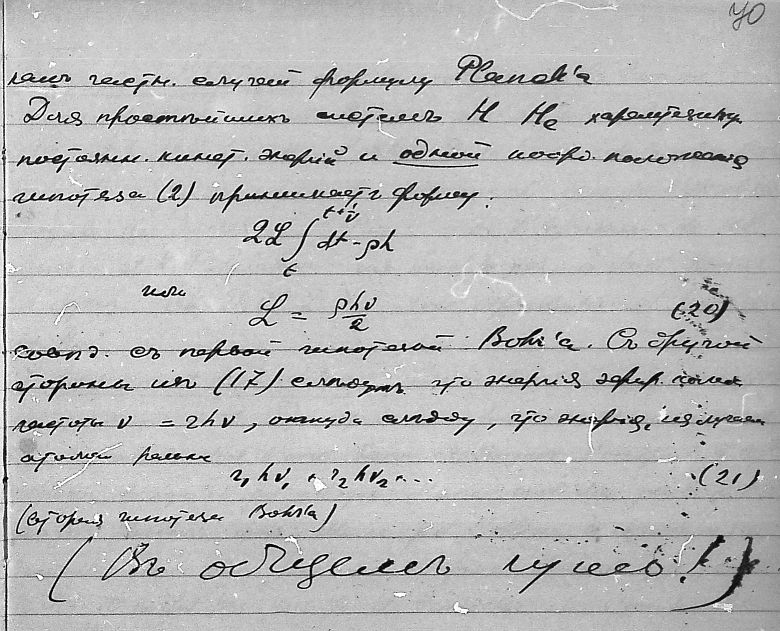 70
частн. случай формулу Planck'a
Для простѣйшихъ системъ H He характериз.
постоянн. кинет. энергiй и одной коорд. положенiя
гипотеза (2) принимаетъ форму.
2L ∫ₜ^{t+1/ν} dt = ρh
или
L = ρhν/2 (20)
совпд. съ первой гипотезой Bohr'a. Съ другой
стороны изъ (17) слѣдуетъ что энергiя эфир.
частоты ν = rhν, откуда слѣду, что энергiя, излучаем
атомом равна
r₁hν₁ + r₂hν₂ + ... (21)
(вторая гипотеза Bohr'a)
(Въ общемъ чушь!)